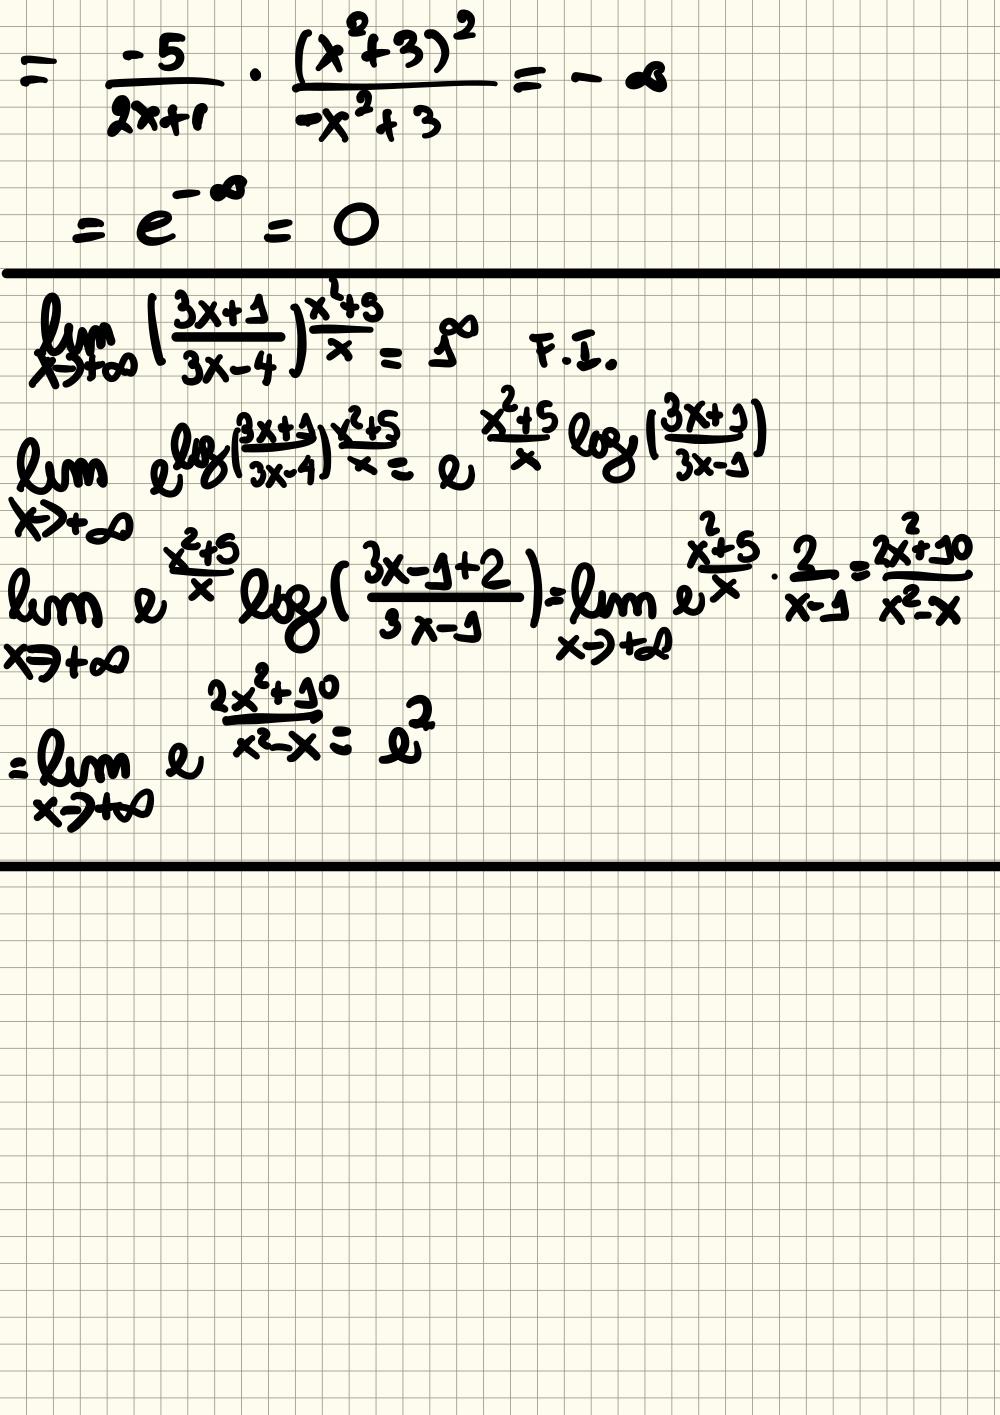 = -5/(2x+1) · (x²+3)²/(-x²+3) = -∞
= e^(-∞) = 0
lim x→+∞ ((3x+1)/(3x-4))^((x²+5)/x) = 1^∞ F.I.
lim x→+∞ e^(log((3x+1)/(3x-4))^((x²+5)/x)) = e^((x²+5)/x log((3x+1)/(3x-1)))
lim x→+∞ e^((x²+5)/x) log((3x-1+2)/(3x-1)) = lim x→+∞ e^((x²+5)/x · 2/(x-1)) = (2x²+10)/(x²-x)
= lim x→+∞ e^((2x²+10)/(x²-x)) = e²